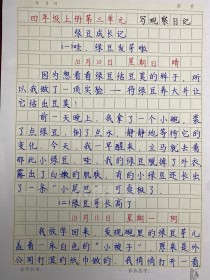 四年级上册第三单元 写观察日记
绿豆成长记
(一)哇,绿豆发芽啦
10月10日 星期日 晴
因为想看看绿豆结豆荚的样子,所
以我做了一项实验——将绿豆养大并让
它结出豆荚。
前一天晚上,我拿了一个小碗,装
了点绿豆,倒了点水,静静地等待它的
变化。今天,我一早醒来,立马就去看
那些小绿豆。哇,我的绿豆脱掉了外衣
露出了白嫩的肌肤,有的小绿豆还长出
了一条“小尾巴”,可爱极了。
(二)绿豆哥长高了
10月11日 星期一 阴
我放学回来,发现碗里的绿豆芽儿
盖着一床白色的“小被子”,原来是外
公用打湿的纸巾做的。我悄悄打开一看